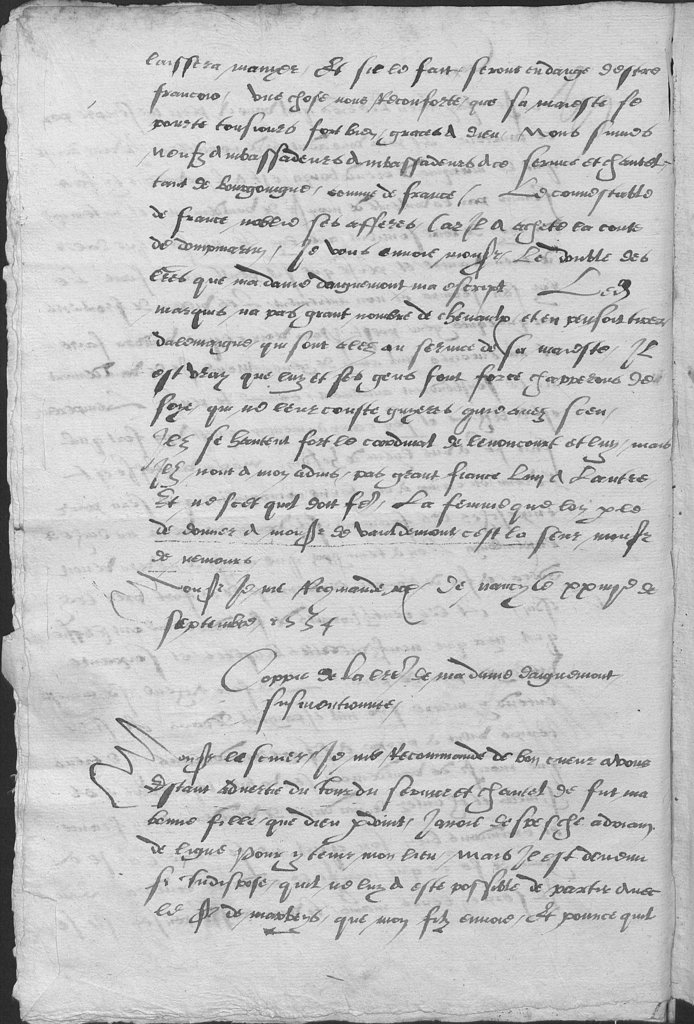 laissera manger, Et sil le fait serons en dangé destre
francois, Une chose nous Reconforte, que sa maieste se
porte tousiours fort bien, graces a dieu, Nous summes
neufz ambassadeurs a ce service et chantel
tant de bourgoingne, comme de france, Le connestable
de france noblie ses afferes Car Il a acheté la conte
de dompmartin, Je vous envoie monsr, Le double des
lres que madame daiguemont ma escript Led
marquis na pas grant nombre de chevaulx, et en pensoit tirer
dalemaigne, qui sont alez au service de sa maieste, Il
est vray que luy et ses gens font force chapperons de
soye, qui ne leur couste gueres
Ilz se hantent fort le cardinal de lenoncourt et luy, mais
Ilz nont a mon advis, pas grant fiance Lun a Lautre
Et ne scet quil doit fe, La femme que lon ple
de donner a monsr de vauldemont cest la seur monsr
de nemours
Monsr Je me Recommande De nancy le xxiiije de
septembre 1554
Coppie de la lre de madame daiguemont
susmentionnee,
Monsr Je me Recommande de bon cueur a vous
Estant advertie du Jour du service et chantel de fut ma
bonne fille, que dieu pdoint, Javoie despesche
de ligne pour y tenir mon lieu, mais Il est devenu
si Indispose, quil ne luy a esté possible de partir avec
le sr de que mon filz envoie, Et pource quil